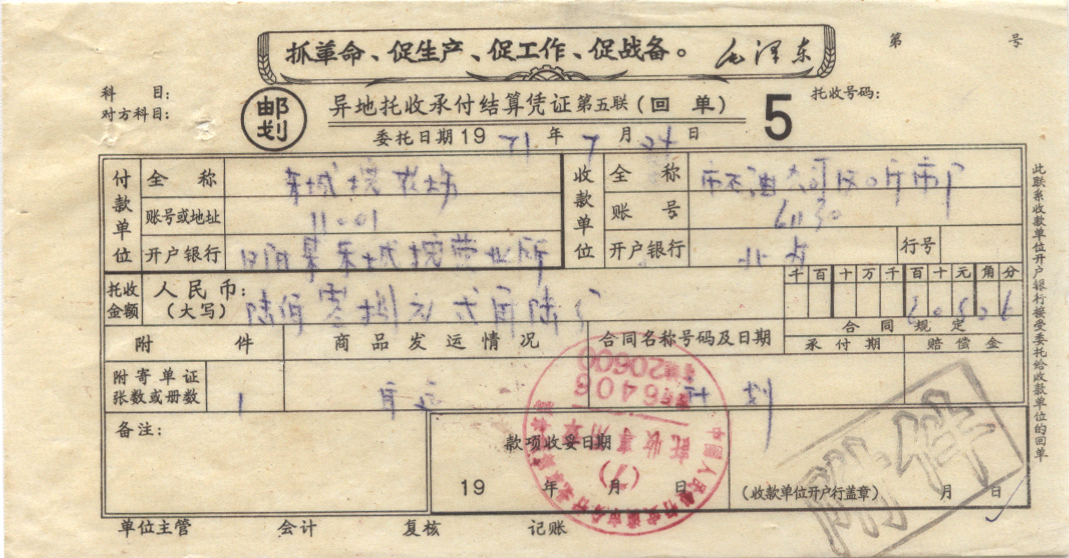 抓革命、促生产、促工作、促战备。 毛泽东
第 号
科 目:
对方科目:
邮划
异地托收承付结算凭证 第五联 (回 单)
5
托收号码:
委托日期 19 71 年 7 月 24 日
付款单位
全 称
账号或地址 11001
开户银行 营业所
收款单位
全 称
账 号 61130
开户银行
行号
托收金额
人民币:
(大写) 陆佰零捌元贰角陆分
千 百 十 万 千 百 十 元 角 分
合 同 规 定
承 付 期 赔 偿 金
附 件 商 品 发 运 情 况 合同名称号码及日期
附寄单证
张数或册数 1 自运 计划
备注:
款项收妥日期
19 年 月 日
(收款单位开户行盖章) 月 日
单位主管 会计 复核 记账
此联系收款单位开户银行接受委托给收款单位的回单
20600
6406
托收专用章
(1)
附件